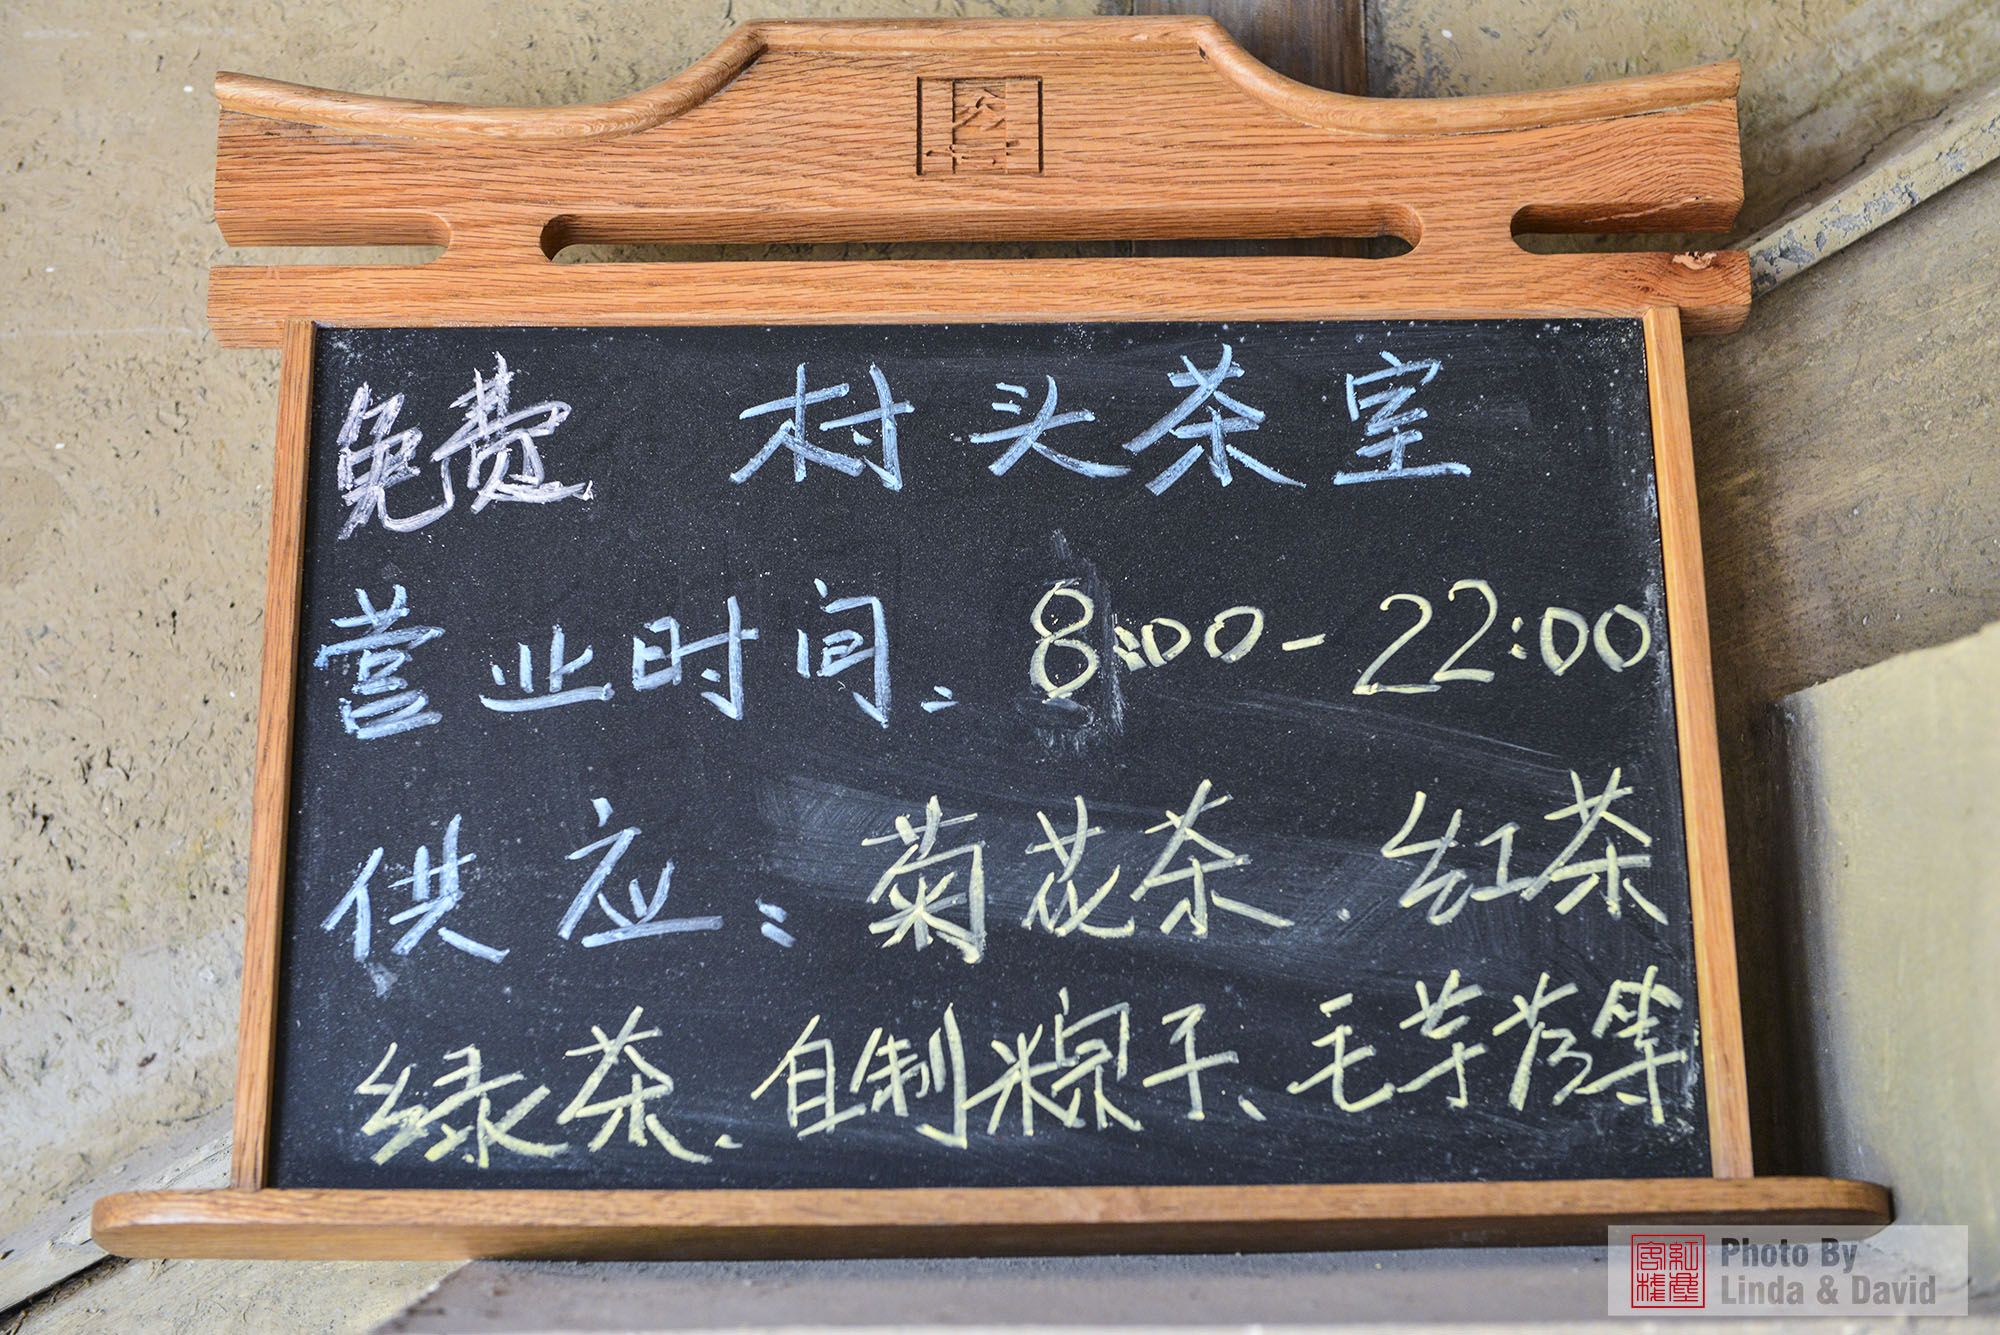 免费 村头茶室
营业时间: 8:00-22:00
供应: 菊花茶 红茶
绿茶、自制粽子、毛芋艿等
Photo By
Linda & David